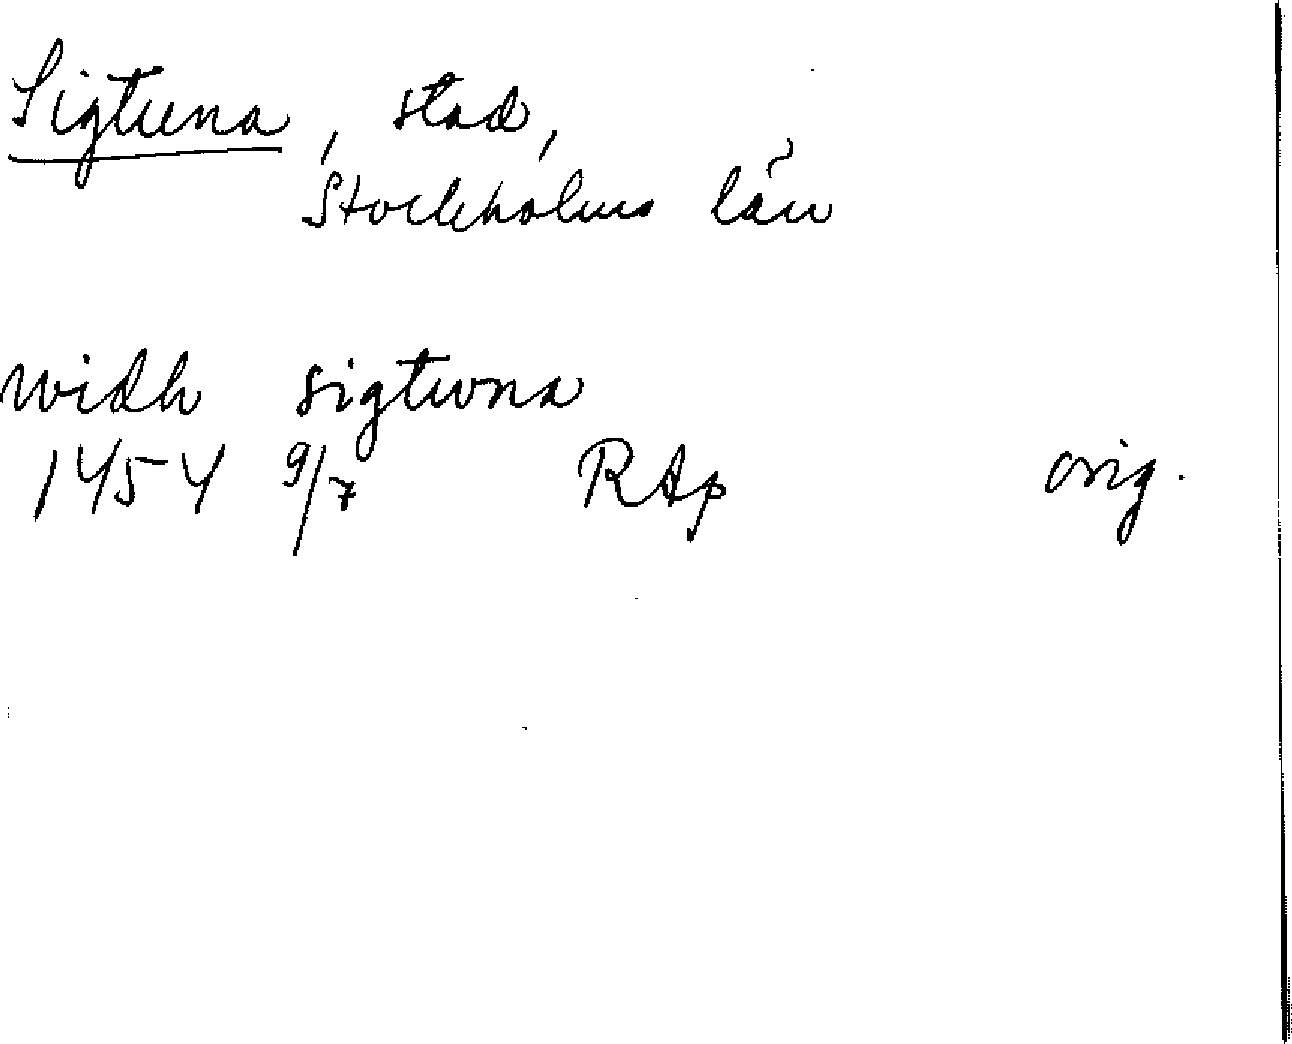 Sigtuna, stad,
Stockholms län
widh sigtwna
1454 9/7 RAp orig.